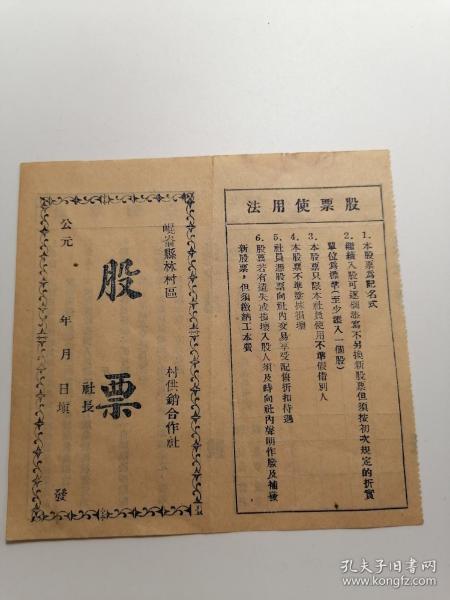 股票使用法
1.本股票為記名式
2.繼續入股可逐個添寫不另換新股票但須按初次規定的折實
單位為標準(至少續入一個股)
3.本股票只限本社員使用不準假借別人
4.本股票不準塗抹損壞
5.社員憑股票向社內交易享受配售折扣待遇
6.股票若有遺失或損壞入股人須及時向社內聲明作廢及補發
新股票,但須繳納工本費
崐崙縣林村區
村供銷合作社
股票
社長
公元 年 月 日填 發
孔夫子旧书网
www.kongfz.com